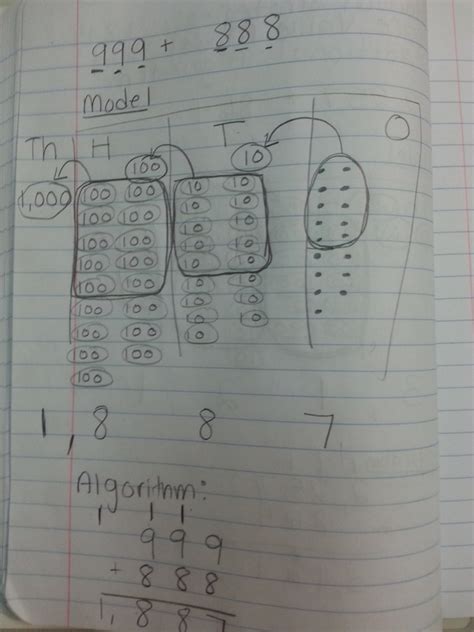 999 + 888
Model
Th H T O
100 10
1,000 100 100 10 10
100 100 10 10
100 100 10 10
100 100 10 10
100 100 10 10
100 100 10 10
100 100 10 10
100 100 10 10
100 10
1,8 8 7
Algorithm:
1 1 1
999
+ 888
1,887